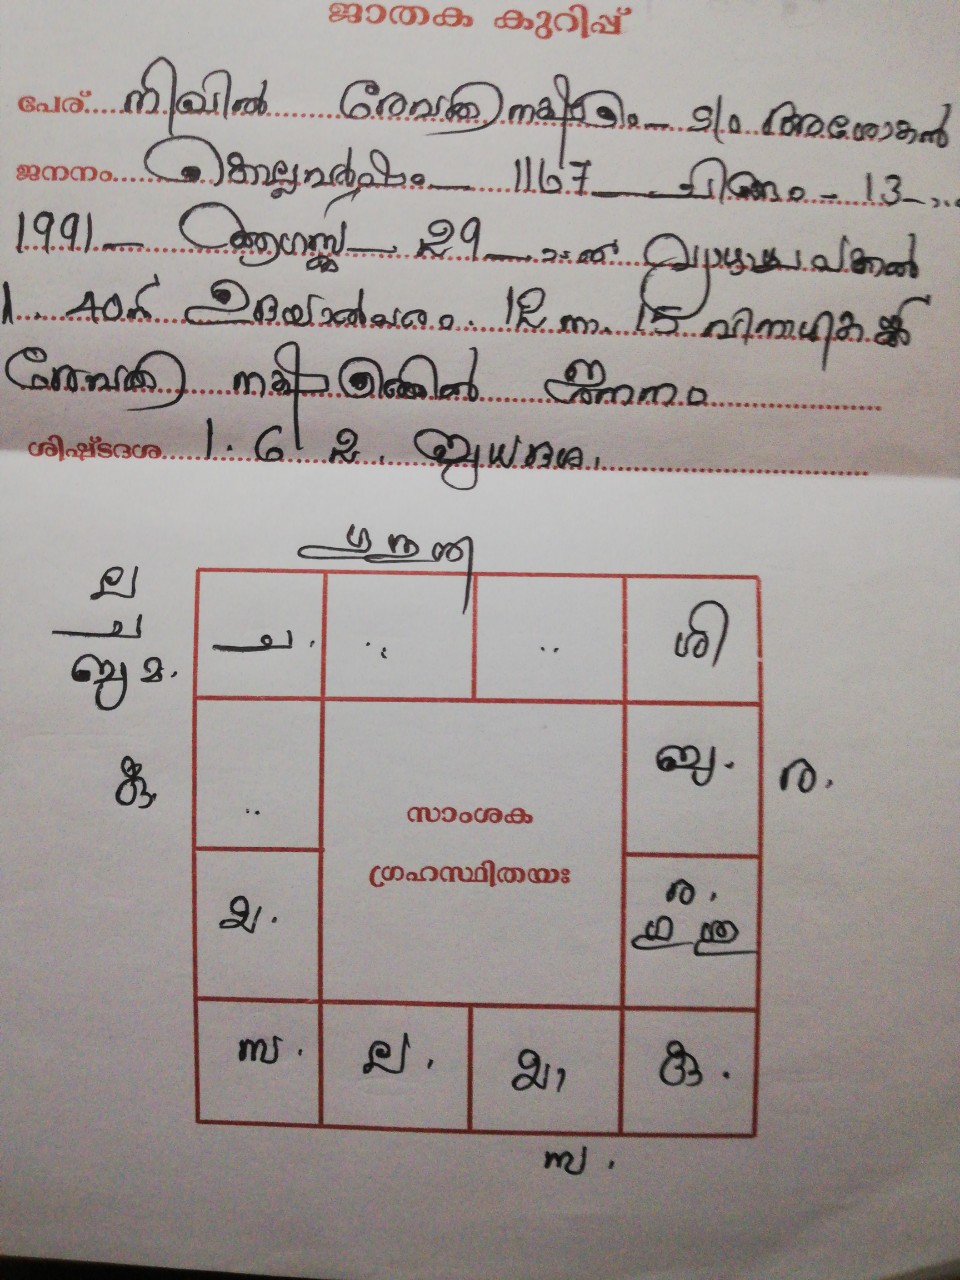 ജാതക കുറിപ്പ്
പേര്.... നിഖിൽ രേവതി നക്ഷത്രം — S/o അശോകൻ
ജനനം.... കൊല്ലവർഷം — 1167 — ചിങ്ങം - 13 -
1991 — ആഗസ്റ്റ് — 29 — വ്യാഴാഴ്ച പകൽ
1. 40ന് ഉദയാൽപരം. 12 നാ. 15 വിനാഴികക്ക്
രേവതി നക്ഷത്രത്തിൽ ജനനം
ശിഷ്ടദശ.... 1. 6 2. ബുധദശ.
ല
ച
ച. .. .. ശി
ബു മ.
ബു. ര.
..
സാംശക
ഗ്രഹസ്ഥിതയഃ
ര.
ഗു ശു
മ.
സ. ല. മ,
സ.